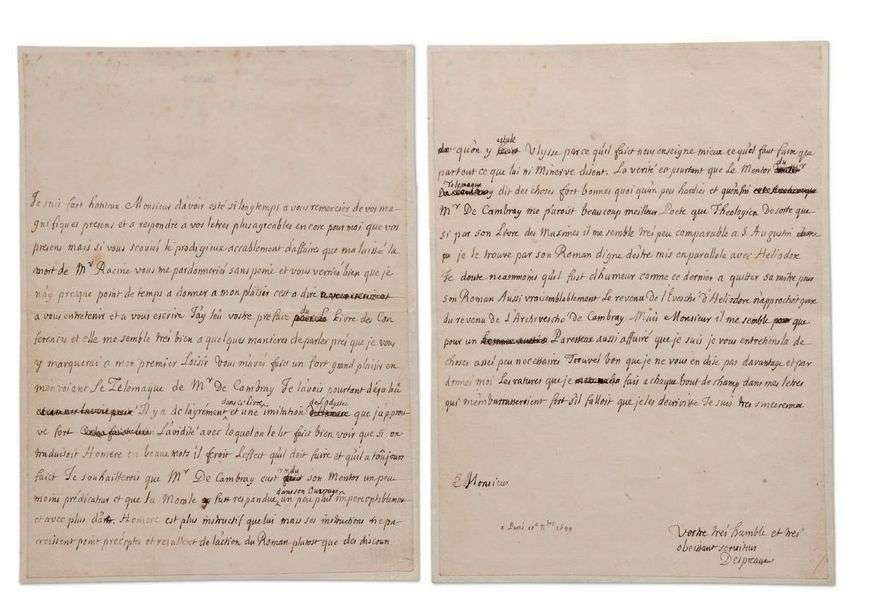 Je suis fort honteux Monsieur davoir esté si longtemps a vous remercier de vos ma-
gnifiques presens et a respondre a vos letres plus agreables encor pour moi que vos
presens mais si vous scaviés le prodigieux accablement d'affaires que m'a laissé la
mort de Mr Racine vous me pardonneriés sans peine et vous verriés bien que je
n'ay presque point de temps a donner a mon plaisir cest a dire
a vous entretenir et a vous escrire J'ay leû vostre preface du Livre des Con-
ferences et elle me semble tres bien a quelques manieres de parler près que je vous
y marquerai a mon premier Loisir Vous m'avés faict un fort grand plaisir en
m'envoiant Le Télemaque de Mr De Cambray Je l'avois pourtant déja lû
dans ce livre de l'odyssée
Il y a de l'agrément et une imitation que japprou-
ve fort L'avidité avec laquelle on le lit faict bien voir que si on
traduisoit Homere en beaux mots il feroit L'effect qu'il doit faire et qu'il a toûjours
rendu
faict Je souhaitterois que Mr De Cambray eust son Mentor un peu
dans son Ouvrage
moins prédicateur et que la Morale fust respandue un peu plus imperceptiblement
et avec plus d'art. Homere est plus instructif que lui mais ses instructions ne pa-
roissent point préceptes et resultent de l'action du Roman plutost que des discours
estale
qu'on y Ulysse par ce qu'il faict nous enseigne mieux ce qu'il faut faire que
du
par tout ce que lui ni Minerve disent. La verité est pourtant que le Mentor
Telemaque
dit des choses fort bonnes quoi qu'un peu hardies et qu'enfin
Mr De Cambray me paroist beaucoup meilleur Poete que Theologien De sorte que
si par son Livre des Maximes il me semble tres peu comparable a S. Augustin
je le trouve par son Roman digne d'estre mis en parallele avec Heliodore
Je doute neanmoins qu'il fust d'humeur comme ce dernier a quitter sa mitre pour
son Roman Aussi vraisemblablement Le revenu de l'Evesché d'Heliodore n'approchoit guere
du revenu de L'Archevesché de Cambray Mais Monsieur il me semble que
pour un Paresseux aussi affairé que je suis je vous entretiens la de
choses assés peu necessaires Trouvés bon que je ne vous en dise pas davantage et par-
donnés moi Les ratures que je fais a chaque bout de champ dans mes letres
qui m'embarrasseroient fort s'il falloit que je les decrivisse Je suis tres sincerement
Monsieur
a Paris 10e 9bre 1699
Vostre tres humble et tres
obeissant serviteur
Despreaux